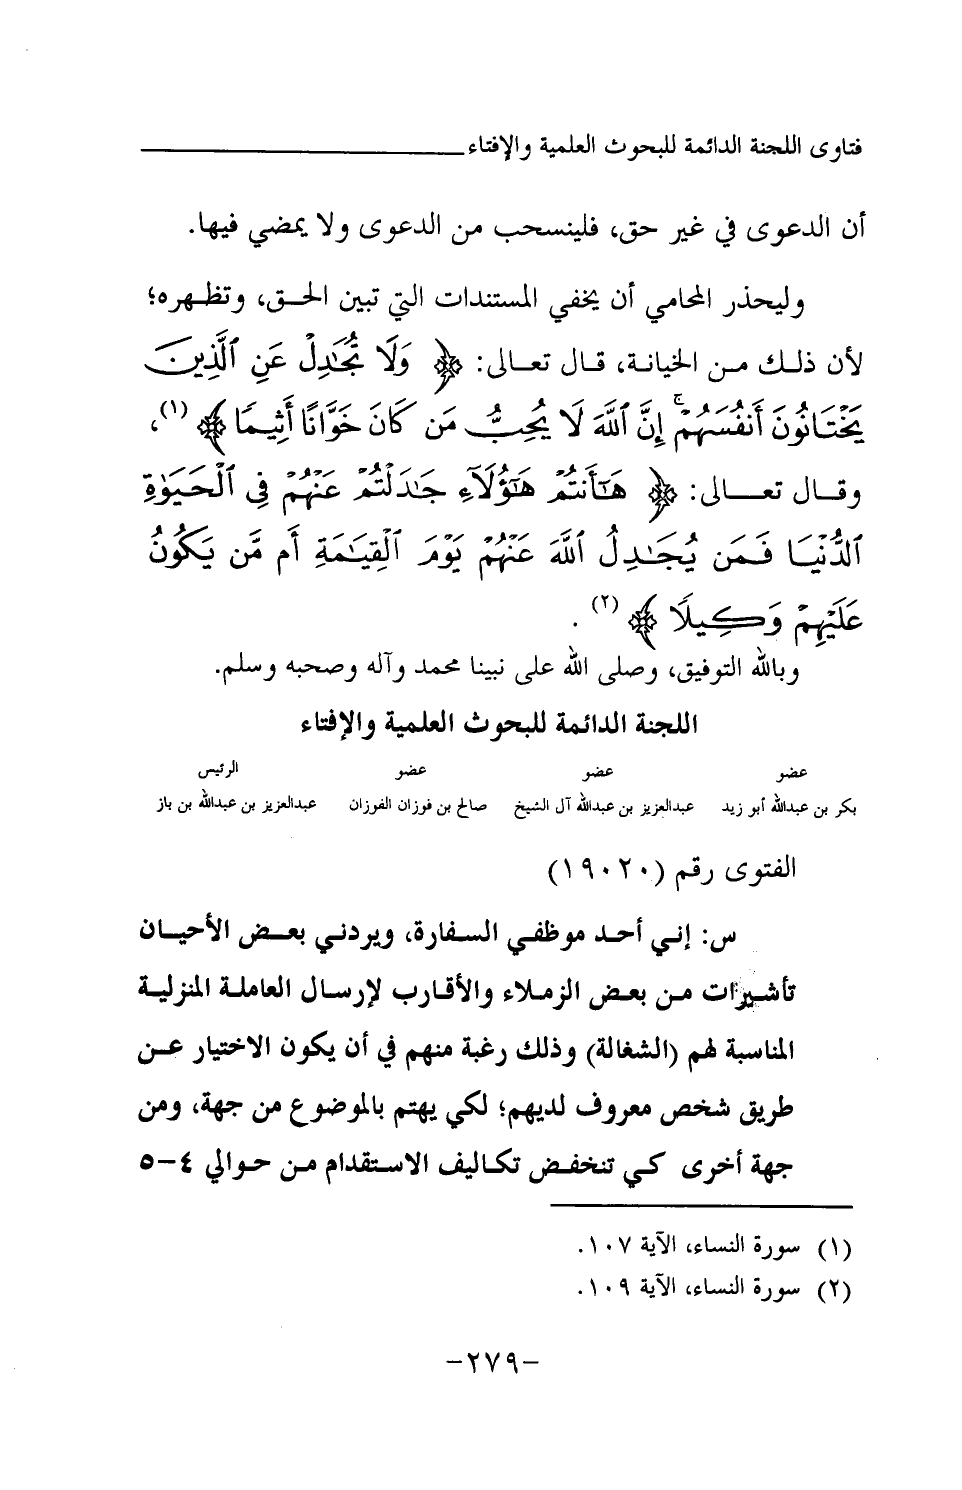 فتاوى اللجنة الدائمة للبحوث العلمية والإفتاء
أن الدعوى في غير حق، فلينسحب من الدعوى ولا يمضي فيها.
وليحذر المحامي أن يخفي المستندات التي تبين الحـق، وتظهره؛
لأن ذلك من الخيانة، قال تعالى: ﴿ وَلَا تُجَٰدِلْ عَنِ ٱلَّذِينَ
يَخْتَانُونَ أَنفُسَهُمْ ۚ إِنَّ ٱللَّهَ لَا يُحِبُّ مَن كَانَ خَوَّانًا أَثِيمًا ﴾ (١)،
وقال تعالى: ﴿ هَٰٓأَنتُمْ هَٰٓؤُلَآءِ جَٰدَلْتُمْ عَنْهُمْ فِى ٱلْحَيَوٰةِ
ٱلدُّنْيَا فَمَن يُجَٰدِلُ ٱللَّهَ عَنْهُمْ يَوْمَ ٱلْقِيَٰمَةِ أَم مَّن يَكُونُ
عَلَيْهِمْ وَكِيلًا ﴾ (٢) .
وبالله التوفيق، وصلى الله على نبينا محمد وآله وصحبه وسلم.
اللجنة الدائمة للبحوث العلمية والإفتاء
عضو عضو عضو الرئيس
بكر بن عبدالله أبو زيد عبدالعزيز بن عبدالله آل الشيخ صالح بن فوزان الفوزان عبدالعزيز بن عبدالله بن باز
الفتوى رقم (١٩٠٢٠)
س: إني أحد موظفي السفارة، ويردني بعض الأحيان
تأشيرات من بعض الزملاء والأقارب لإرسال العاملة المنزلية
المناسبة لهم (الشغالة) وذلك رغبة منهم في أن يكون الاختيار عن
طريق شخص معروف لديهم؛ لكي يهتم بالموضوع من جهة، ومن
جهة أخرى كي تنخفض تكاليف الاستقدام من حوالي ٤-٥
(١) سورة النساء، الآية ١٠٧.
(٢) سورة النساء، الآية ١٠٩.
-٢٧٩-